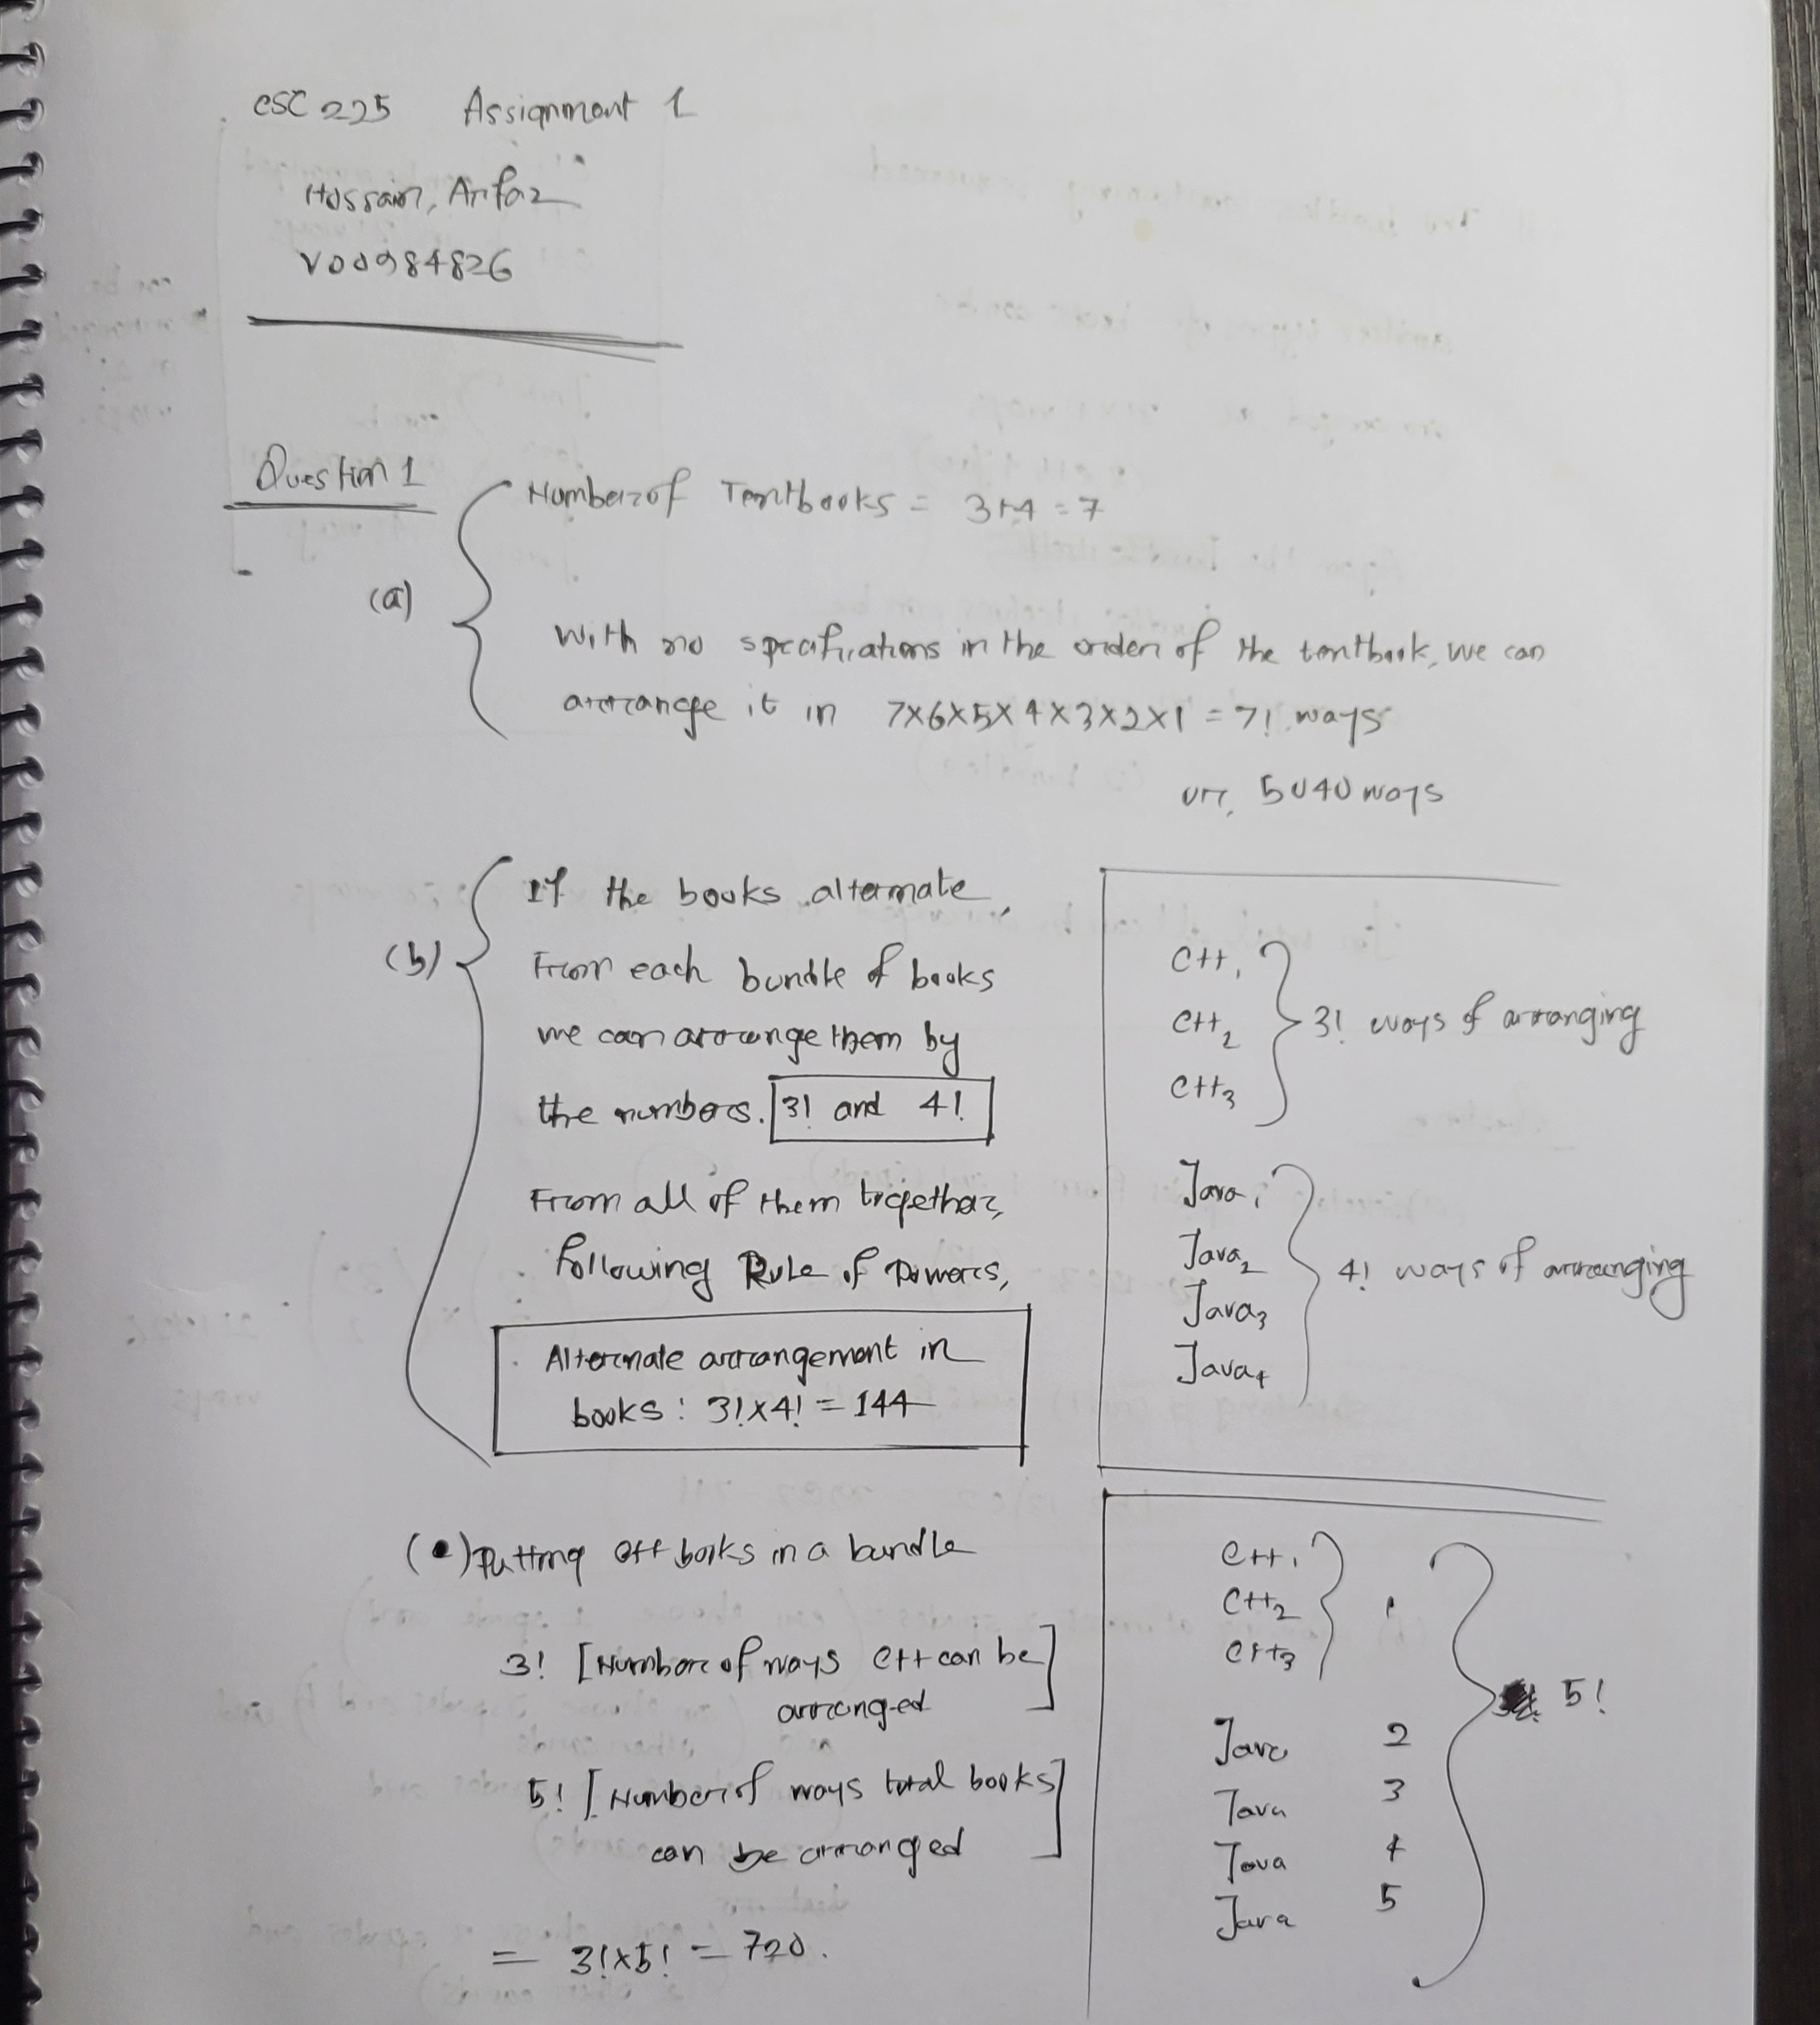 CSC 225 Assignment 1
Hossain, Arfaz
V00984826
Question 1
(a)
Number of Textbooks = 3+4 = 7
With no specifications in the order of the textbook, we can
arrange it in 7×6×5×4×3×2×1 = 7! ways
or, 5040 ways
(b)
If the books alternate,
From each bundle of books
we can arrange them by
the numbers. 3! and 4!
From all of them together,
following Rule of Powers,
Alternate arrangement in
books : 3!×4! = 144
C++1
C++2
C++3
3! ways of arranging
Java1
Java2
Java3
Java4
4! ways of arranging
(c) Putting C++ books in a bundle
3! [Number of ways C++ can be
arranged]
5! [Number of ways total books
can be arranged]
= 3!×5! = 720.
C++1
C++2
C++3
1
Java 2
Java 3
Java 4
Java 5
5!